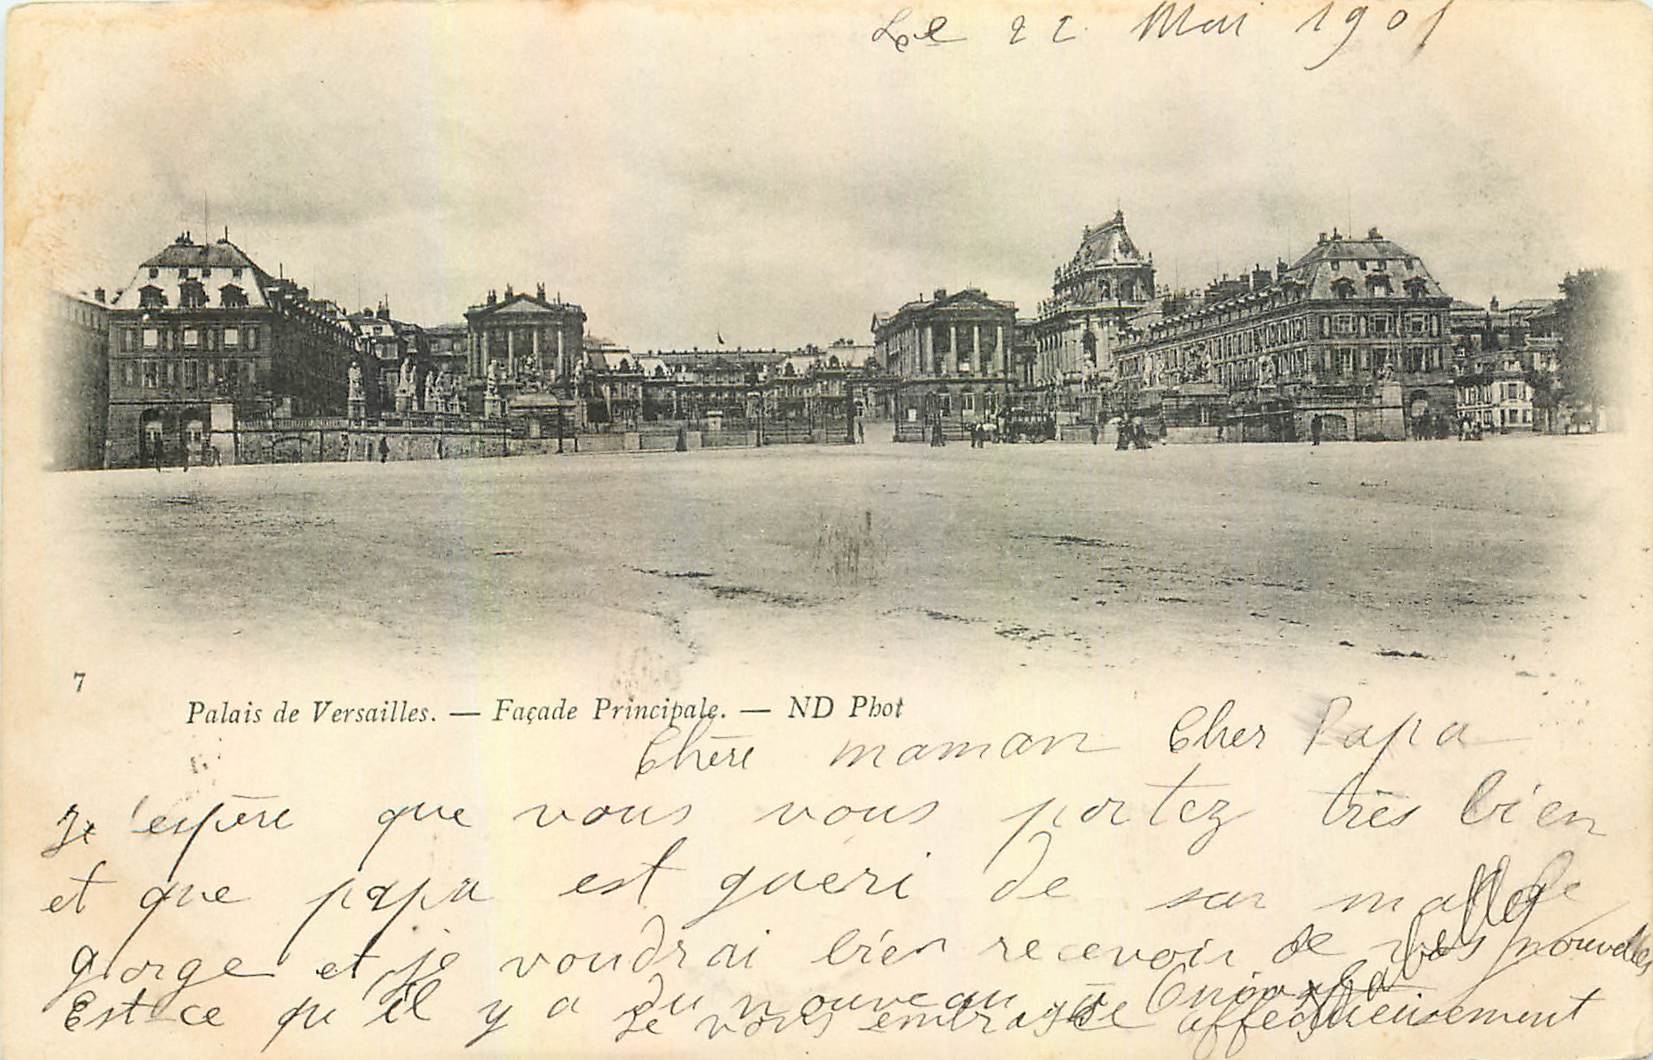 Le 22 Mai 1901
7
Palais de Versailles. — Façade Principale. — ND Phot
Chère maman Cher Papa
Je t'espère que vous vous portez très bien
et que papa est guéri de son mal de
gorge et je voudrai bien recevoir de vos nouvelles
Est-ce qu'il y a du nouveau à
Je vous embrasse affectueusement